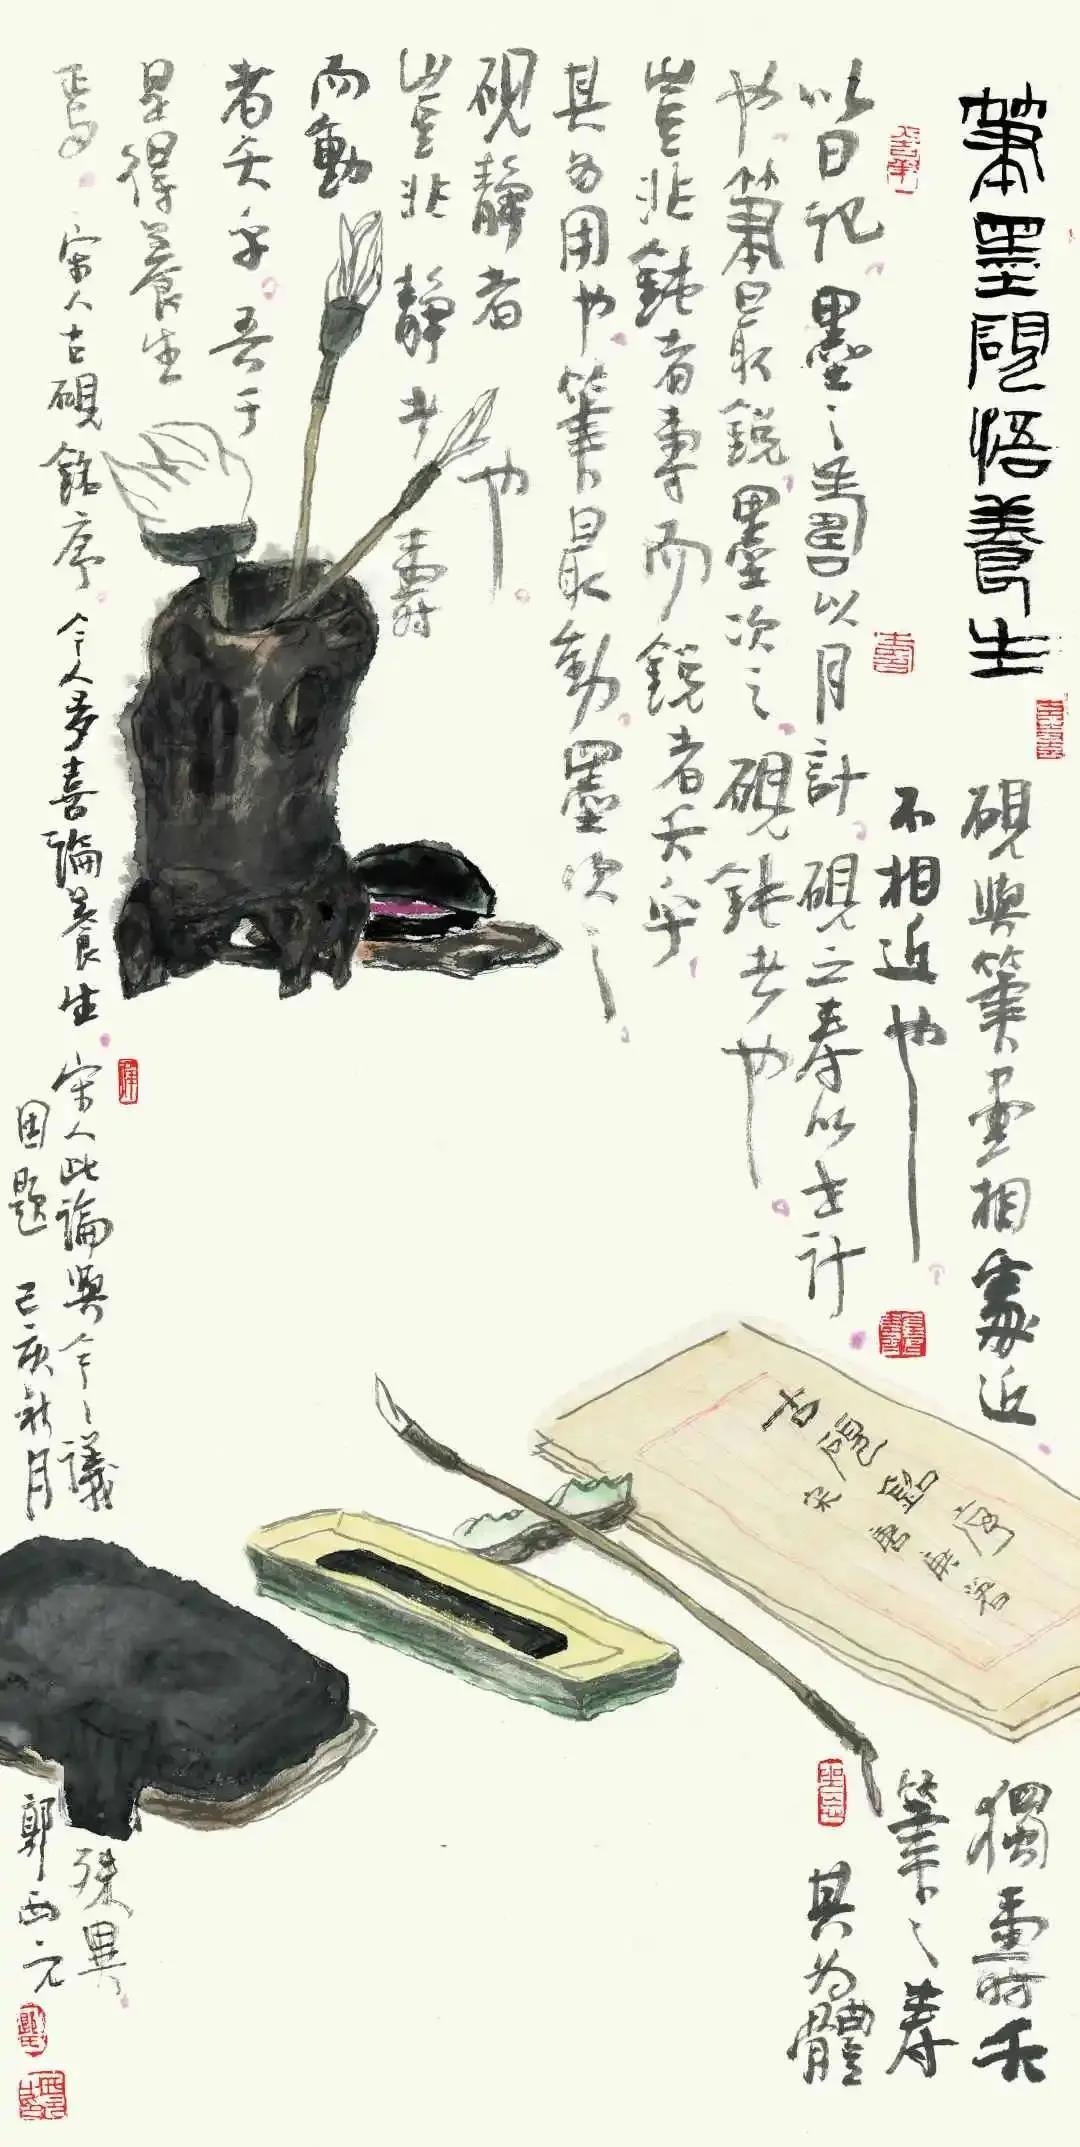 筆墨硯悟養生
硯與筆墨相處近獨壽夭
不相近也筆之壽
以日記墨之壽以月計硯之壽以世計其为體
也筆最銳墨次之硯鈍者也
豈非鈍者壽而銳者夭乎
其为用也筆最動墨次之
硯靜者也
豈非靜者壽
而動
者夭乎吾于
是得養生
焉宋人古硯銘序今人多喜論養生宋人此論與今之議殊異
因題己亥秋月郭西元
古硯銘序
宋唐庚著